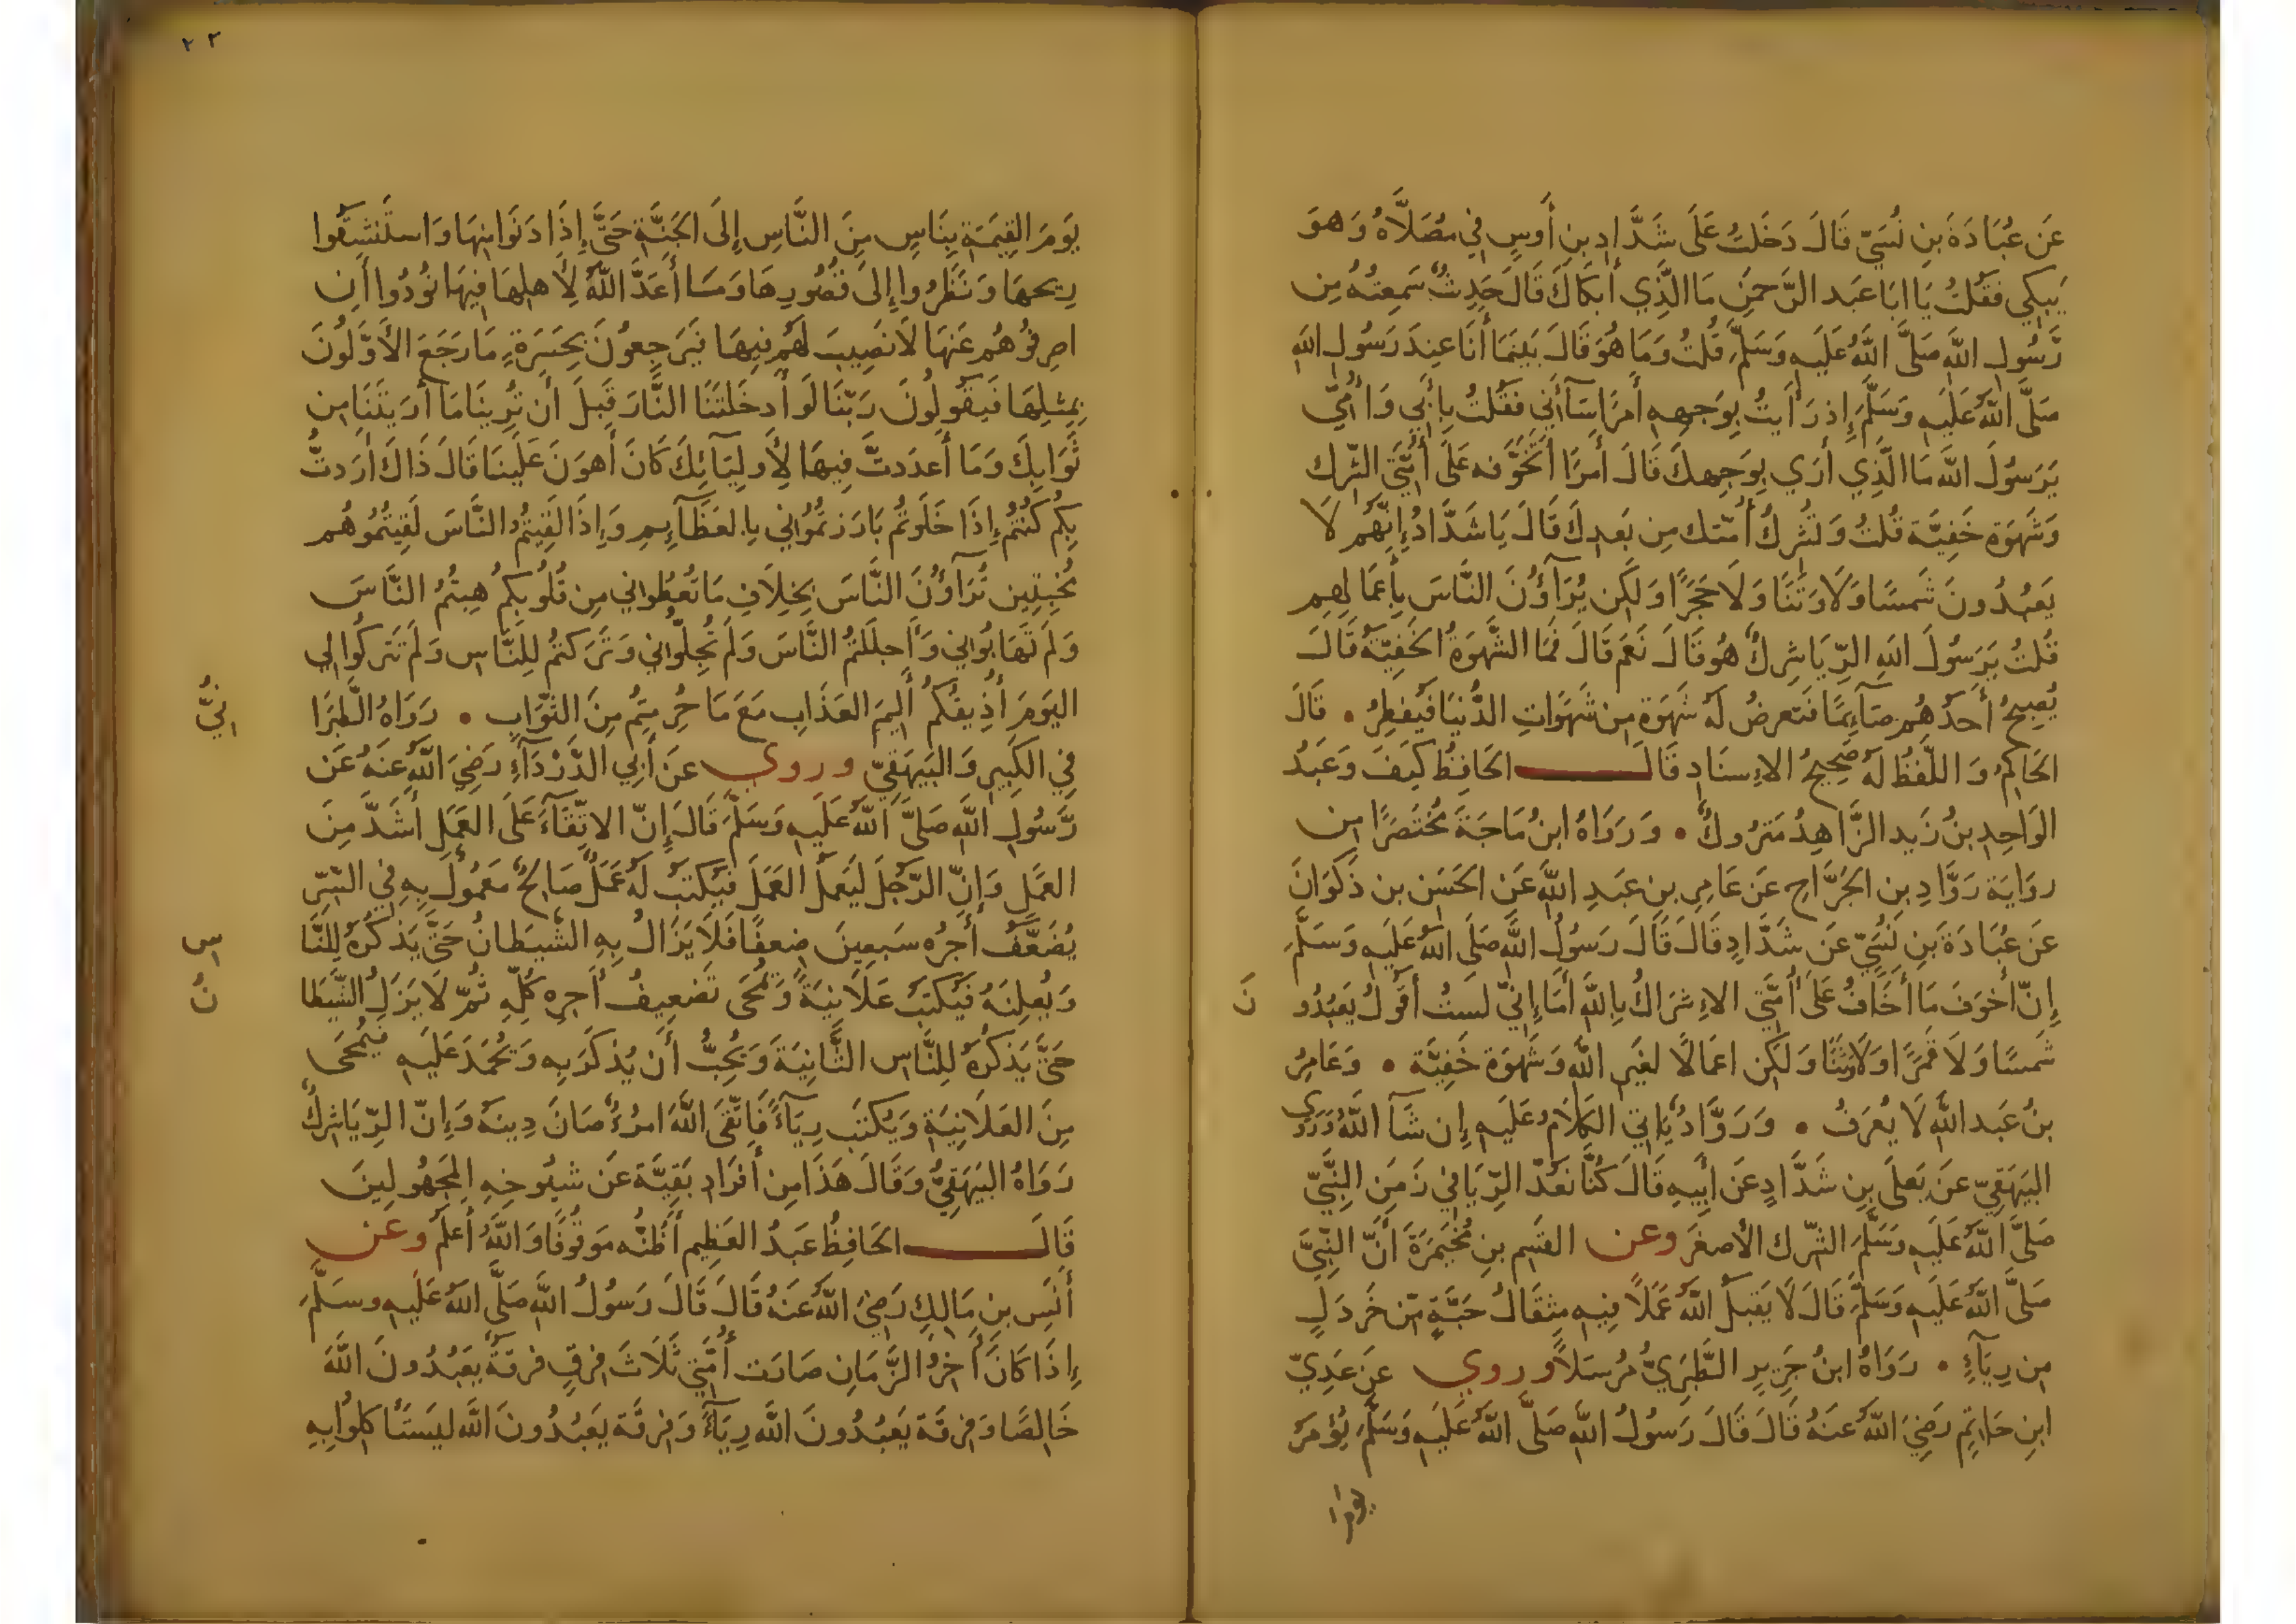 عَن عُبَادَةَ بنِ نُسَيّ قَالَ دَخَلتُ عَلَى شَدَّادِ بنِ أَوسٍ فِي مُصَلَّاهُ وَهوَ
يَبكِي فَقُلتُ يَا ابَا عَبد الرَّحمَنِ مَا الَّذِي أَبكَاكَ قَالَ حَدِيثٌ سَمِعتُهُ مِن
رَّسُولِ اللَّهِ صَلَّى اللَّهُ عَلَيهِ وَسَلَّمَ قُلتُ وَمَا هُوَ قَالَ بَينَمَا أَنَا عِندَ رَسُولِ اللَّهِ
صَلَّى اللَّهُ عَلَيهِ وَسَلَّمَ إِذ رَأَيتُ بِوَجهِهِ أَمرًا سَآأَنِي فَقُلتُ بِأَبِي وَأُمِّي
يَرَسُولَ اللَّهِ مَا الَّذِي أَرَي بِوَجهِكَ قَالَ أَمرًا أَتَخَوَّفه عَلَى أُمَّتِي الشِّرك
وَشَهوَة خَفِيَّة قُلتُ وَتُشرِكُ أُمَّتك مِن بَعدِكَ قَالَ يَا شَدَّادُ إِنَّهُم لَا
يَعبُدُونَ شَمسًا وَلَا وَثَنًا وَلَا حَجَرًا وَلَكِن يُرَآؤُنَ النَّاسَ بِأَعمَالِهِم
قُلتُ يَرَسُولَ اللَّهِ الرِّيَا شِركٌ هُو قَالَ نَعَم قَالَ فَمَا الشَّهوَةُ الخَفِيَّةُ قَالَ
يُصبِحُ أَحَدُهُم صَآئِمًا فَتَعرضُ لَهُ شَهوَة مِن شَهَوَاتِ الدُّنيَا فَيُفطِرُ • قَالَ
الحَاكِمُ وَاللَّفظُ لَهُ صَحِيحُ الإِسنَادِ قَالَ الحَافِظُ كَيفَ وَعَبدُ
الوَاحِدِ بنُ زَيد الزَّاهِدُ مَترُوكٌ • وَرَوَاهُ ابنُ مَاجَةَ مُختَصَرًا مِن
روَايَة رَوَّادِ بن الجَرَّاحِ عَن عَامِرِ بنِ عَبدِ اللَّهِ عَنِ الحَسَن بن ذَكوَانَ
عَن عُبَادَةَ بنِ نُسَيّ عَن شَدَّادٍ قَالَ قَالَ رَسُولُ اللَّهِ صَلَّى اللَّهُ عَلَيهِ وَسَلَّمَ
إِنَّ أَخوَفَ مَا أَخَافُ عَلَى أُمَّتِي الإِشرَاكُ بِاللَّهِ أَمَا إِنِّي لَستُ أَقولُ يَعبُدُو
نَ
شَمسًا وَلَا قَمَرًا وَلَا وَثَنًا وَلَكِن اعمَالًا لغَيرِ اللَّهِ وَشَهوَة خَفِيَّة • وَعَامِرُ
بنُ عَبد اللَّهِ لَا يُعرَفُ • وَرَوَّادٌ يَاتِي الكَلَامُ عَلَيهِ إِن شَآ اللَّهُ وَرَوَى
البَيهَقِيّ عَن يَعلَى بنِ شَدَّادٍ عَن أَبِيهِ قَالَ كُنَّا نَعُدّ الرِّيَا فِي زَمَنِ النَّبِيِّ
صَلَّى اللَّهُ عَلَيهِ وَسَلَّمَ الشِّرك الأَصغَر وعن القسِم بنِ مُخَيمِرَةَ أَنَّ النَّبِيَّ
صَلَّى اللَّهُ عَلَيهِ وَسَلَّمَ قَالَ لَا يَقبَلُ اللَّهُ عَمَلًا فِيهِ مِثقَالُ حَبَّةٍ مِّن خَردَلٍ
مِن رِيَآءٍ • رَوَاهُ ابنُ جَرِيرٍ الطَّبَرِيُّ مُرسَلًا وروي عَن عَدِيّ
ابنِ حَاتِمٍ رَضِيَ اللَّهُ عَنهُ قَالَ قَالَ رَسُولُ اللَّهِ صَلَّى اللَّهُ عَلَيهِ وَسَلَّمَ يُؤمَرُ
يَومَ
٢٢
يَومَ القِيمَةِ بِنَاسٍ مِنَ النَّاسِ إِلَى الجَنَّةِ حَتَّى إِذَا دَنَوا مِنهَا وَاستَنشَقُوا
رِيحهَا وَنَظَرُوا إِلَى قُصُورِهَا وَمَا أَعَدَّ اللَّهُ لِأَهلِهَا فِيهَا نُودُوا أَنِ
اصرِفُوهُم عَنهَا لَا نَصِيبَ لَهُم فِيهَا فَيَرجِعُونَ بِحَسرَةٍ مَا رَجَعَ الأَوَّلُونَ
بِمِثلِهَا فَيَقُولُونَ رَبَّنَا لَو أَدخَلتَنَا النَّارَ قَبلَ أَن تُرِينَا مَا أَرَيتَنَا مِن
ثَوَابِكَ وَمَا أَعدَدتَّ فِيهَا لِأَولِيَآئِكَ كَانَ أَهوَنَ عَلَينَا قَالَ ذَاكَ أَرَدتُّ
بِكُم كُنتُم إِذَا خَلَوتُم بَارَزتُمُوانِي بِالعَظَآئِمِ وَإِذَا لَقِيتُمُ النَّاسَ لَقِيتُمُوهُم
مُخبِتِين تُرَآؤُنَ النَّاسَ بِخِلَافِ مَا تُعطُوانِي مِن قُلُوبِكُم هِبتُمُ النَّاسَ
وَلَم تَهَابُوانِي وَأَجلَلتُمُ النَّاسَ وَلَم تُجِلُّوانِي وَتَرَكتُم لِلنَّاسِ وَلَم تَترُكُوا لِي
اليَومَ أُذِيقُكُم أَلِيمَ العَذَابِ مَعَ مَا حُرِمتُم مِنَ الثَّوَابِ • رَوَاهُ الطَّبَرَا
نِيُّ
فِي الكَبِيرِ وَالبَيهَقِيّ وروي عَن أَبِي الدَّردَآءِ رَضِيَ اللَّهُ عَنهُ عَن
رَّسُولِ اللَّهِ صَلَّى اللَّهُ عَلَيهِ وَسَلَّمَ قَالَ إِنَّ الاتِّقَآءَ عَلَى العَمَلِ أَشَدُّ مِنَ
العَمَلِ وَإِنَّ الرَّجُلَ لَيَعمَلُ العَمَلَ فَيُكتَبُ لَهُ عَمَلٌ صَالِحٌ مَعمُولٌ بِهِ فِي السِّرِّ
يُضَعَّفُ أَجرُه سَبعِينَ ضِعفًا فَلَا يَزَالُ بِهِ الشَّيطَانُ حَتَّى يَذكُرَهُ لِلنَّا
سِ
وَيُعلِنَهُ فَيُكتَبُ عَلَانِيَةً وَيُمحَى تَضعِيفُ أَجرِهِ كُلِّهِ ثُمَّ لَا يَزَلُ الشَّيطَا
نُ
حَتَّى يَذكُرَهُ لِلنَّاسِ الثَّانِيَةَ وَيُحِبُّ أَن يُذكَرَ بِهِ وَيُحمَدَ عَلَيهِ فَيُمحَى
مِنَ العَلَانِيَةِ وَيُكتَب رِيَآءً فَاتَّقَى اللَّهَ امرُءٌ صَانَ دِينَهُ وَإِنَّ الرِّيَا شِركٌ
رَوَاهُ البَيهَقِيُّ وَقَالَ هَذَا مِن أَفرَادِ بَقِيَّة عَن شيُوخِهِ المَجهُولِينَ
قَالَ الحَافِظُ عَبدُ العَظِيم أَظُنُّه مَوقُوفًا وَاللَّهُ أَعلَم وعن
أَنَسِ بنِ مَالِكٍ رَضِيَ اللَّهُ عَنهُ قَالَ قَالَ رَسُولُ اللَّهِ صَلَّى اللَّهُ عَلَيهِ وسَلَّمَ
إِذَا كَانَ آخِرُ الزَّمَانِ صَارَت أُمَّتِي ثَلَاثَ فِرَقٍ فرقَةٌ يَعبُدُونَ اللَّهَ
خَالِصًا وَفِرقَة يَعبُدُونَ اللَّه رِيَآءً وَفِرقَة يَعبُدُونَ اللَّه ليَستَاكِلُوا بِهِ